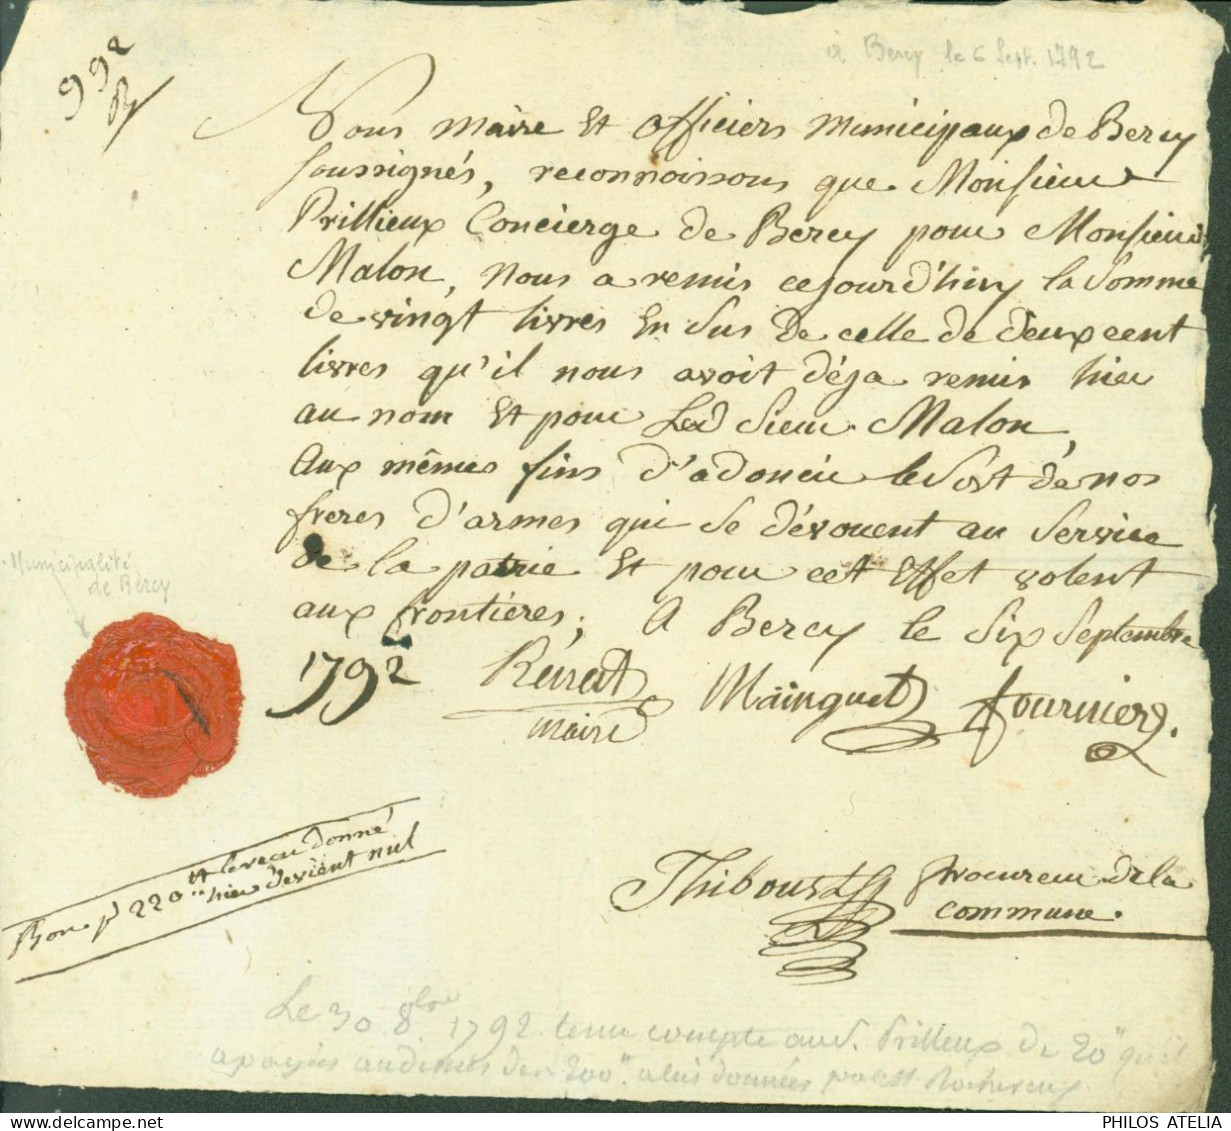 à Bercy le 6 Sept. 1792
992
Nous Maire Et Officiers Municipaux de Bercy
soussignés, reconnoissons que Monsieur
Prillieux Concierge de Bercy pour Monsieur
Malon, Nous a remis cejourd'huy la Somme
de vingt livres En Sus de celle de deux cent
livres qu'il nous avoit déja remis hier
au nom Et pour Led Sieur Malon,
Aux mêmes fins d'adoucir le Sort de nos
freres d'armes qui Se dévouent au Service
de la patrie Et pour cet Effet volent
aux frontières; A Bercy le Six Septembre
1792
Mainguet
fournier
Maire
Municipalité
de Bercy
Bon pr 220 tt le recu donné
hier devient nul
Thiboust
Procureur de la
Commune.
Le 30 8bre 1792 tenu compte au S. Prilleux de 20 tt qu'il
a payés
PHILOS ATELIA